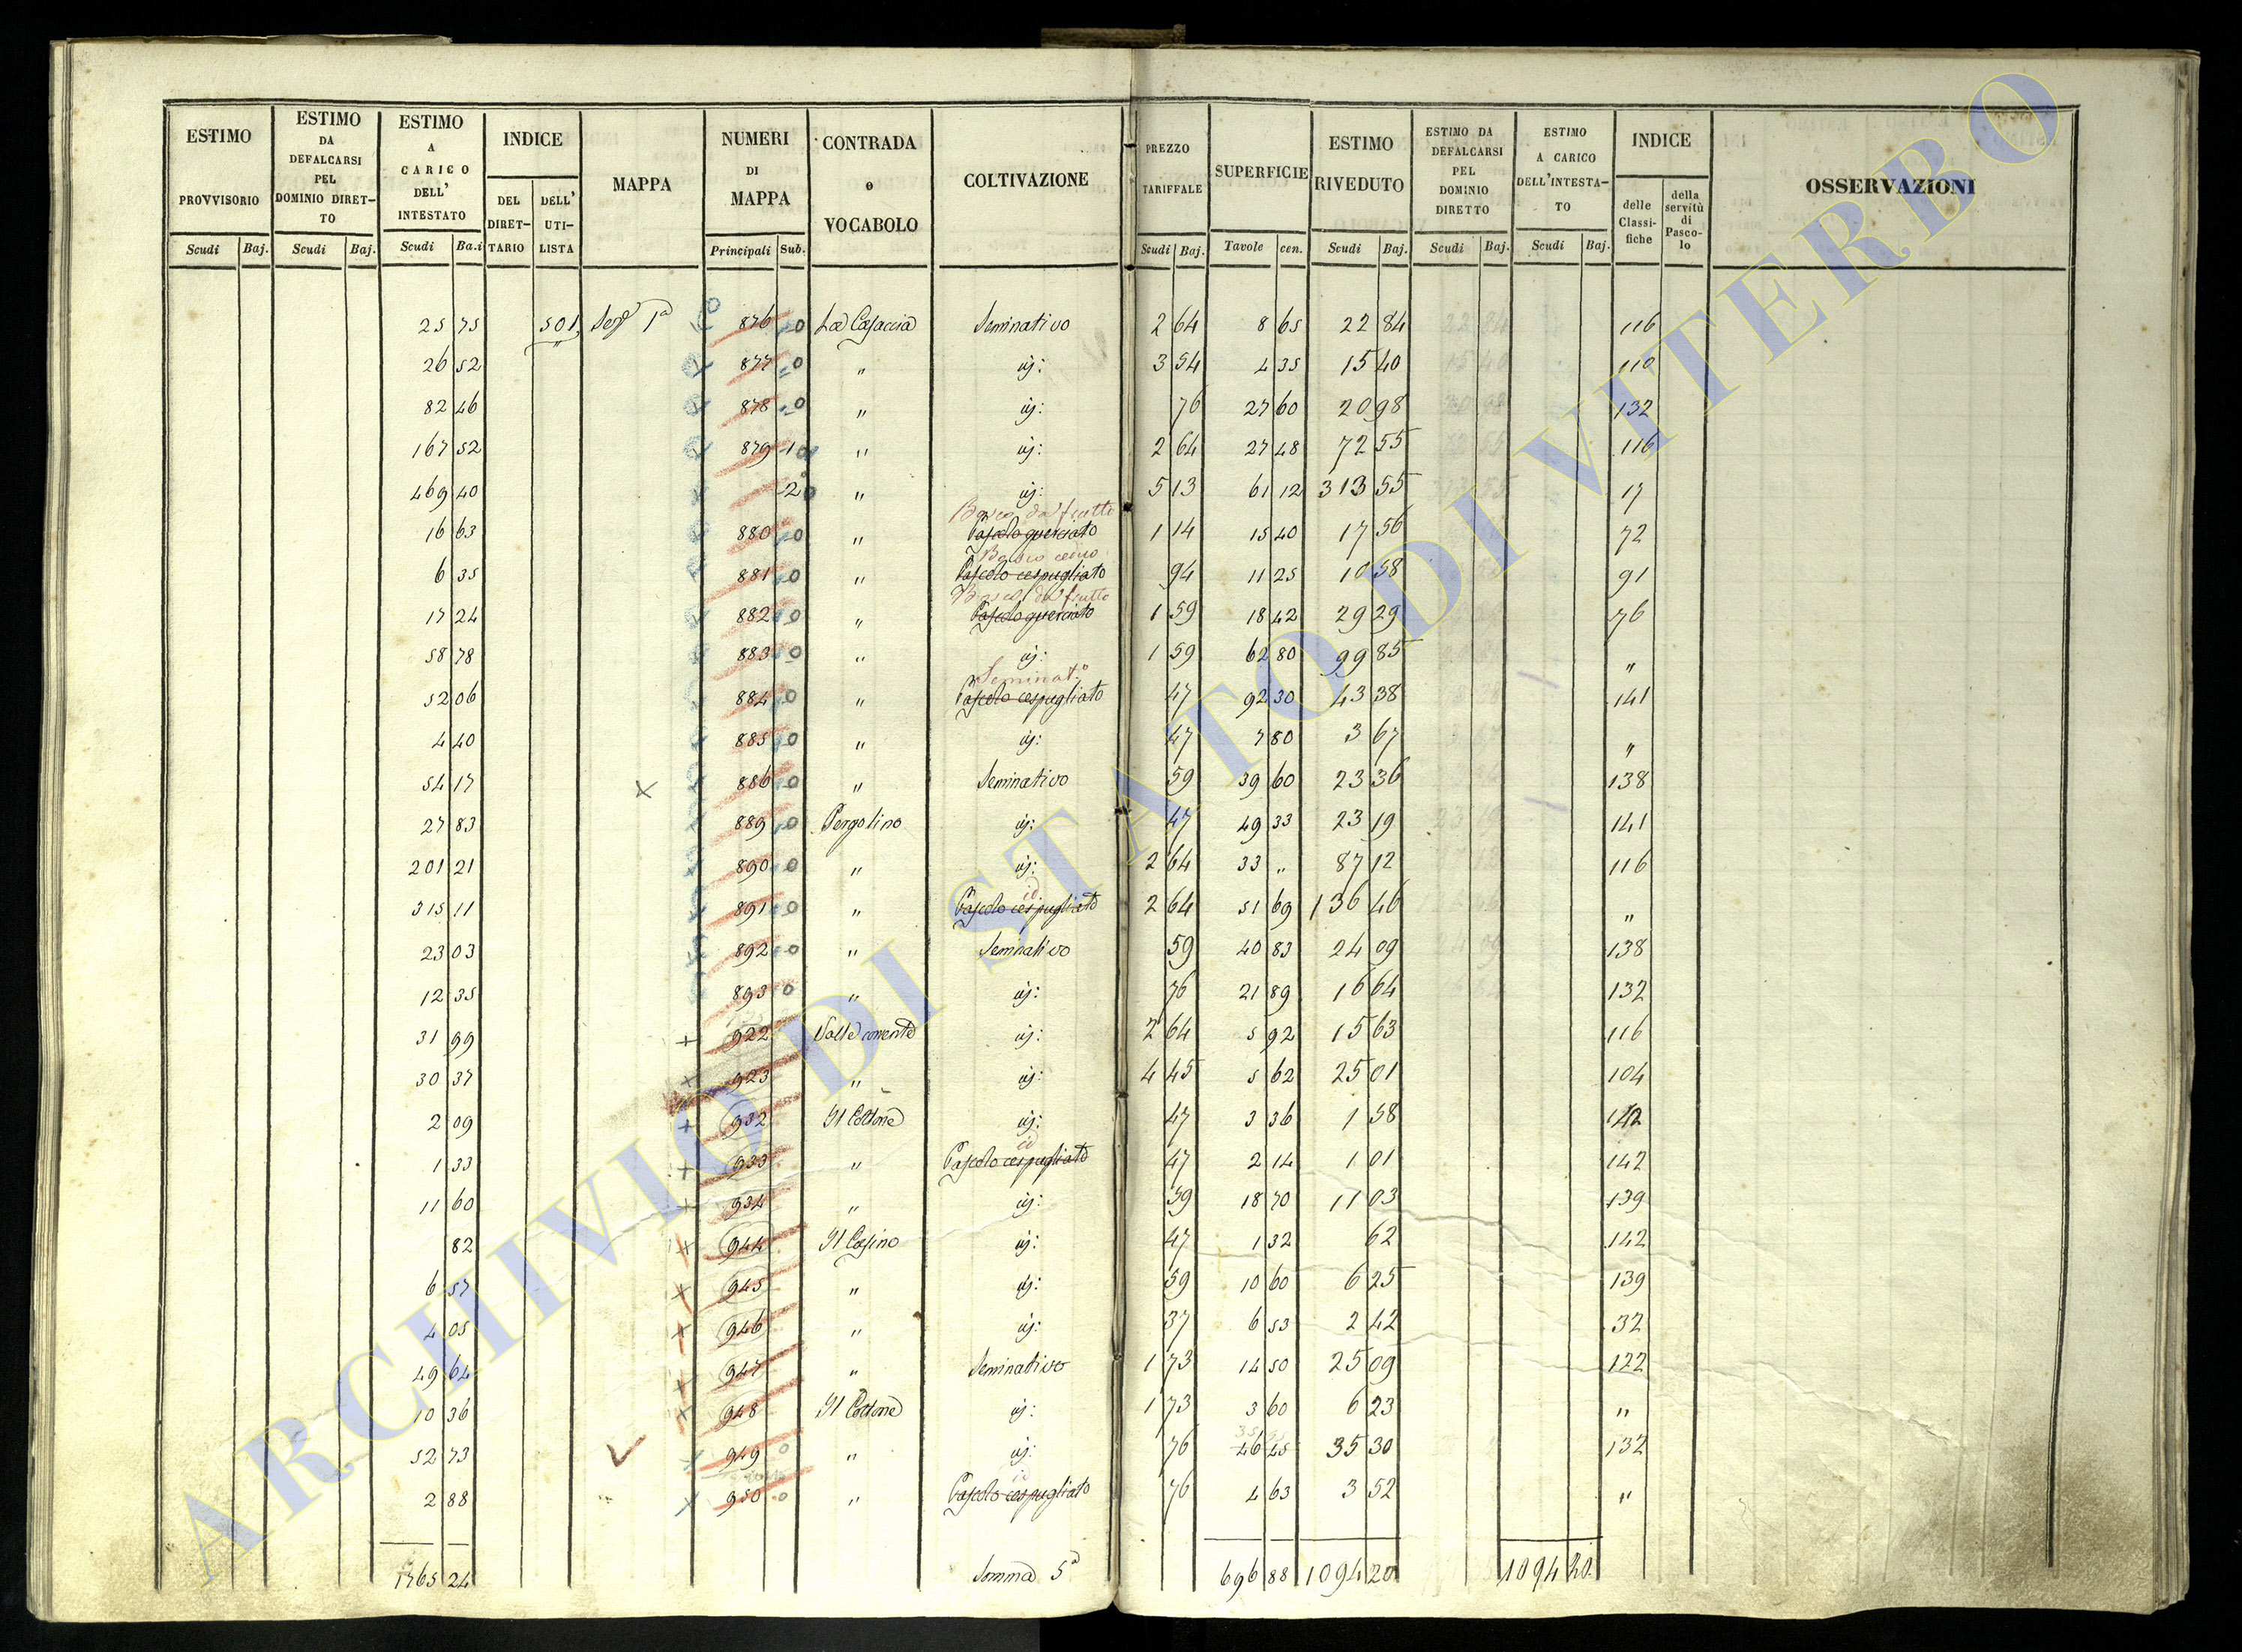 ESTIMO PROVVISORIO Scudi Baj. ESTIMO DA DEFALCARSI PEL DOMINIO DIRETTO Scudi Baj. ESTIMO A CARICO DELL' INTESTATO Scudi Ba.i INDICE DEL DIRETTARIO DELL' UTILISTA MAPPA NUMERI DI MAPPA Principali Sub. CONTRADA o VOCABOLO COLTIVAZIONE PREZZO TARIFFALE Scudi Baj. SUPERFICIE Tavole cen. ESTIMO RIVEDUTO Scudi Baj. ESTIMO DA DEFALCARSI PEL DOMINIO DIRETTO Scudi Baj. ESTIMO A CARICO DELL'INTESTATO Scudi Baj. INDICE delle Classifiche della servitù di Pascolo OSSERVAZIONI
25 75 501 Sez.e 1a 876 0 La Casaccia Seminativo 2 64 8 65 22 84 116
26 52 877 0 " id: 3 54 4 35 15 40 110
82 46 878 0 " id: 76 27 60 20 98 132
167 52 879 1 0 " id: 2 64 27 48 72 55 116
469 40 2 0 " id: 5 13 61 12 313 55 17
Bosco da frutto
16 63 880 0 " Pascolo querciato 1 14 15 40 17 56 72
Bosco ceduo
6 35 881 0 " Pascolo cespugliato 94 11 25 10 58 91
Bosco da frutto
17 24 882 0 " Pascolo querciato 1 59 18 42 29 29 76
58 78 883 0 " id: 1 59 62 80 99 85 "
Seminat.o
52 06 884 0 " Pascolo cespugliato 47 92 30 43 38 141
4 40 885 0 " id: 47 7 80 3 67 "
54 17 x 886 0 " Seminativo 59 39 60 23 36 138
27 83 889 0 Pergolino id: 47 49 33 23 19 141
201 21 890 0 " id: 2 64 33 " 87 12 116
id
315 11 891 0 " Pascolo cespugliato 2 64 51 69 136 46 "
23 03 892 0 " Seminativo 59 40 83 24 09 138
12 35 893 0 " id: 76 21 89 16 64 132
31 99 x 922 Valle conente id: 2 64 5 92 15 63 116
30 37 x 923 " id: 4 45 5 62 25 01 104
2 09 x 932 Il Cottone id: 47 3 36 1 58 142
id
1 33 x 933 " Pascolo cespugliato 47 2 14 1 01 142
11 60 x 934 " id: 59 18 70 11 03 139
82 x 944 Il Casino id: 47 1 32 62 142
6 57 x 945 " id: 59 10 60 6 25 139
4 05 x 946 " id: 37 6 53 2 42 32
49 64 x 947 " Seminativo 1 73 14 50 25 09 122
10 36 x 948 Il Cottone id: 1 73 3 60 6 23 "
52 73 x 949 0 " id: 76 46 45 35 30 132
id
2 88 x 950 0 " Pascolo cespugliato 76 4 63 3 52 "
1765 24 Somma 5a 696 88 1094 20 1094 20
ARCHIVIO DI STATO DI VITERBO